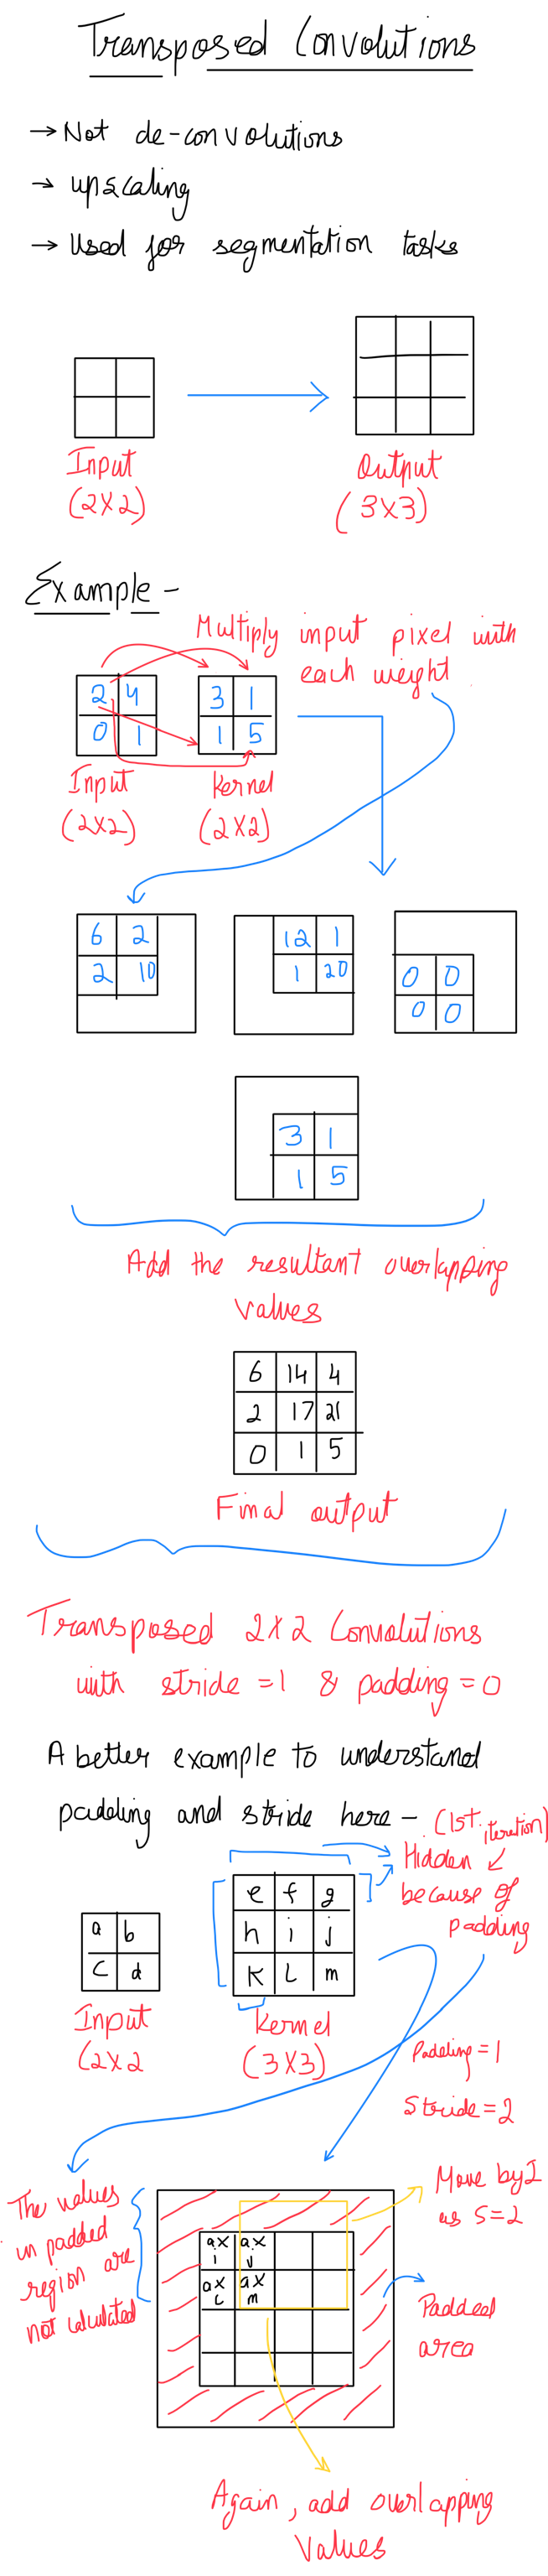 Transposed Convolutions
→ Not de-convolutions
→ upscaling
→ Used for segmentation tasks
Input
(2X2)
Output
(3X3)
Example -
Multiply input pixel with
each weight
2 4
0 1
3 1
1 5
Input
(2X2)
Kernel
(2X2)
6 2
2 10
12 1
1 20
0 0
0 0
3 1
1 5
Add the resultant overlapping
values
6 14 4
2 17 21
0 1 5
Final output
Transposed 2X2 Convolutions
with stride = 1 & padding = 0
A better example to understand
padding and stride here - (1st iteration)
Hidden
because of
padding
a b
c d
e f g
h i j
K L m
Input
(2X2
Kernel
(3X3)
Padding = 1
Stride = 2
The values
in padded
region are
not calculated
Move by 2
as S=2
ax i
ax j
ax L
ax m
Padded
area
Again, add overlapping
values